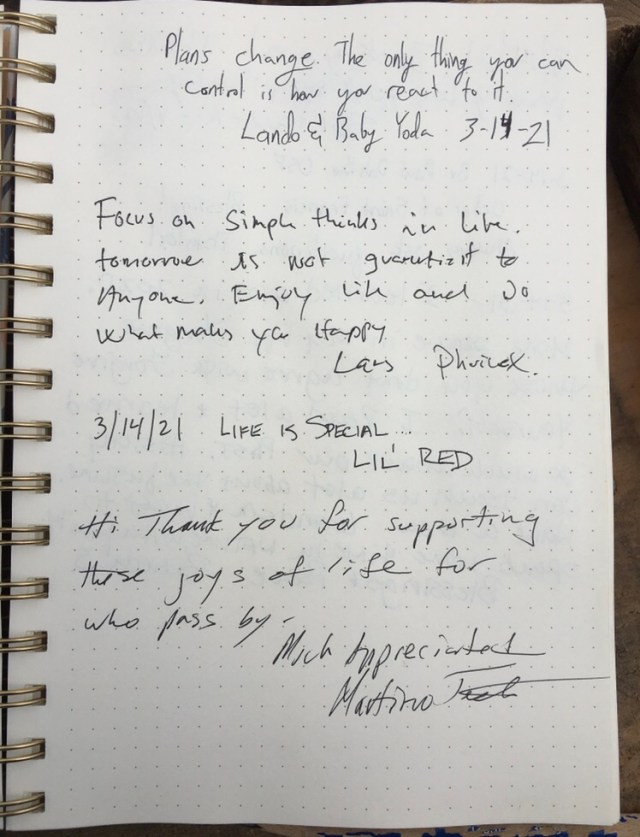 Plans change. The only thing you can
control is how you react to it
Lando & Baby Yoda 3-14-21
Focus on Simple thinks in live.
tomorrow is not guarantizit to
Anyone. Enjoy life and do
what makes you Happy
Lars
3/14/21 LIFE IS SPECIAL...
LIL' RED
Hi Thank you for supporting
these joys of life for
who pass by -
Much Appreciated